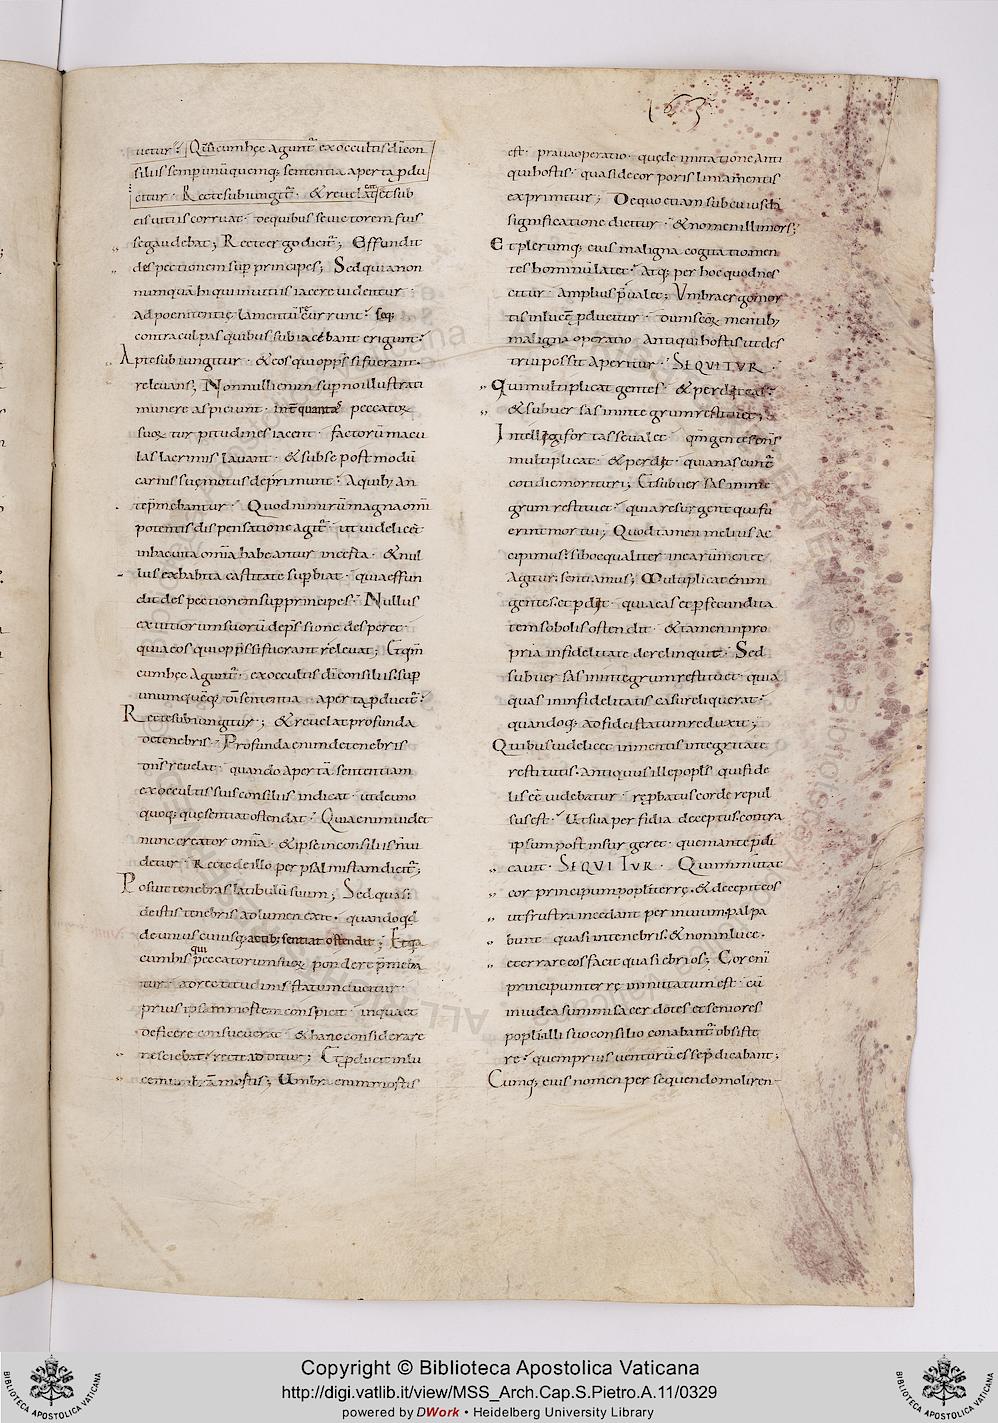 163
uetur; Quū cumhęc agunt᷑ ex occultis dī con
siliis semp unū quemq; sententia aperta ꝑdu
citur · Recte subiungit᷑ · & reuelat qui et sub
eis uitiis corruat · de quibus seuictorem fuis
se gaudebat; Recte ergo dicit᷑; Effundit
despectionem suꝑ principes; Sed quia non
numquā hi qui in uitiis iacere uidentur ·
ad poenitentię lamentū recurrunt · seq;
contra culpas quibus subiacebant erigunt ·
Apte subiungitur · & eos qui opp̄ssi fuerant ·
releuans; Nonnulli enim suꝑno illustrati
munere aspiciunt · in quantis peccatoꝝ
suoꝝ turpitudines iacent · factorū macu
las lacrimis lauant · & subse postmodū
carnis suę motus deprimunt · a quib; an
te p̄mebantur · Quod nimirū magna om̄i
potentis dispensatione agit᷑ · ut uidelicet
in hac uita om̄ia habeantur incerta · & nul
lus ex habita castitate suꝑbiat · quia effun
dit despectionem suꝑ principes · Nullus
ex uitiorum suorū dep̄ssione desperet ·
quia eos qui opp̄ssi fuerant releuat; Et qm̄
cum hęc agunt᷑ · ex occultis dī consiliis suꝑ
unumquēq; dī sententia aperta ꝑducit᷑ ·
Recte subiungitur; & reuelat profunda
de tenebris · Profunda enim de tenebris
dn̄s reuelat · quando apertā sententiam
ex occultis suis consiliis indicat · ut de uno
quoq; quę sentiat ostendat · Quia enim uidet
nunc creator om̄ia · & ipse in consiliis n̄ ui
detur · Recte de illo per psalmistam dicit᷑;
Posuit tenebras latibulū suum; Sed quasi
de istis tenebris ad lumen exit · quando qd̄
de unius cuiusq; actib; sentiat ostendit; Et qa
cum his qui peccatorum suoꝝ pondere p̄meba
tur · ad rectitudinis statum ducitur ·
prius ipsam mortem conspicit · in qua et
deficere consueuerat · & hanc considerare
nesciebat · recte additur; Et ꝑducit in lu
cem umbrā mortis; Umbra enim mortis
est · praua operatio · quę de imitatione anti
qui hostis · quasi de corporis liniamentis
exprimitur; De quo etiam sub cuiusdā
significatione dicitur · & nomen illi mors;
Et plerumq; eius maligna cogitatio men
tes hominū latet · Atq; per hoc quod nes
citur · amplius p̄ualet; Umbra ergo mor
tis in lucē ꝑducitur · dum sc̄oꝝ mentib;
maligna operatio antiqui hostis ut des
trui possit aperitur · SEQUITUR ·
Qui multiplicat gentes · & perdit eas ·
& subuersas in integrum restituet;
Intellegi fortasse ualet · qm̄ gentes dn̄s
multiplicat · & perdit · quia nascunt᷑
cotidie morituri; Et subuersas in inte
grum restituet · quia resurgent qui fu
erint mortui; Quod tamen melius ac
cipimus · si hoc equaliter in earū mente
agitur sentiamus; Multiplicat enim
gentes et ꝑdit · quia eas et p̄ fecundita
tem sobolis ostendit · & tamen in pro
pria infidelitate derelinquit · Sed
subuersas in integrum restituet · quia
quas in infidelitatis casu reliquerat ·
quandoq; ad fidei statum reduxit;
Quibus uidelicet in mentis integritate
restitutis · antiquus ille popl̄s qui fide
lis eē uidebatur · reꝓbatus corde repul
sus est · Ut sua perfidia deceptus · contra
ipsum post insurgeret · quem ante p̄di
cauit · SEQUITUR · Qui inmutat
cor principum popli terrę · & decepit eos
ut frustra incedant per inuium · palpa
bunt quasi in tenebris · & non in luce ·
et errare eos facit quasi ebrios; Cor enī
principum terrę inmutatum est · cū
in iudea summi sacerdotes et seniores
popli illi suo consilio conabant᷑ obsiste
re · quem prius uenturū esse p̄dicabant;
Cumq; eius nomen persequendo moliren-
Copyright © Biblioteca Apostolica Vaticana
http://digi.vatlib.it/view/MSS_Arch.Cap.S.Pietro.A.11/0329
powered by DWork • Heidelberg University Library